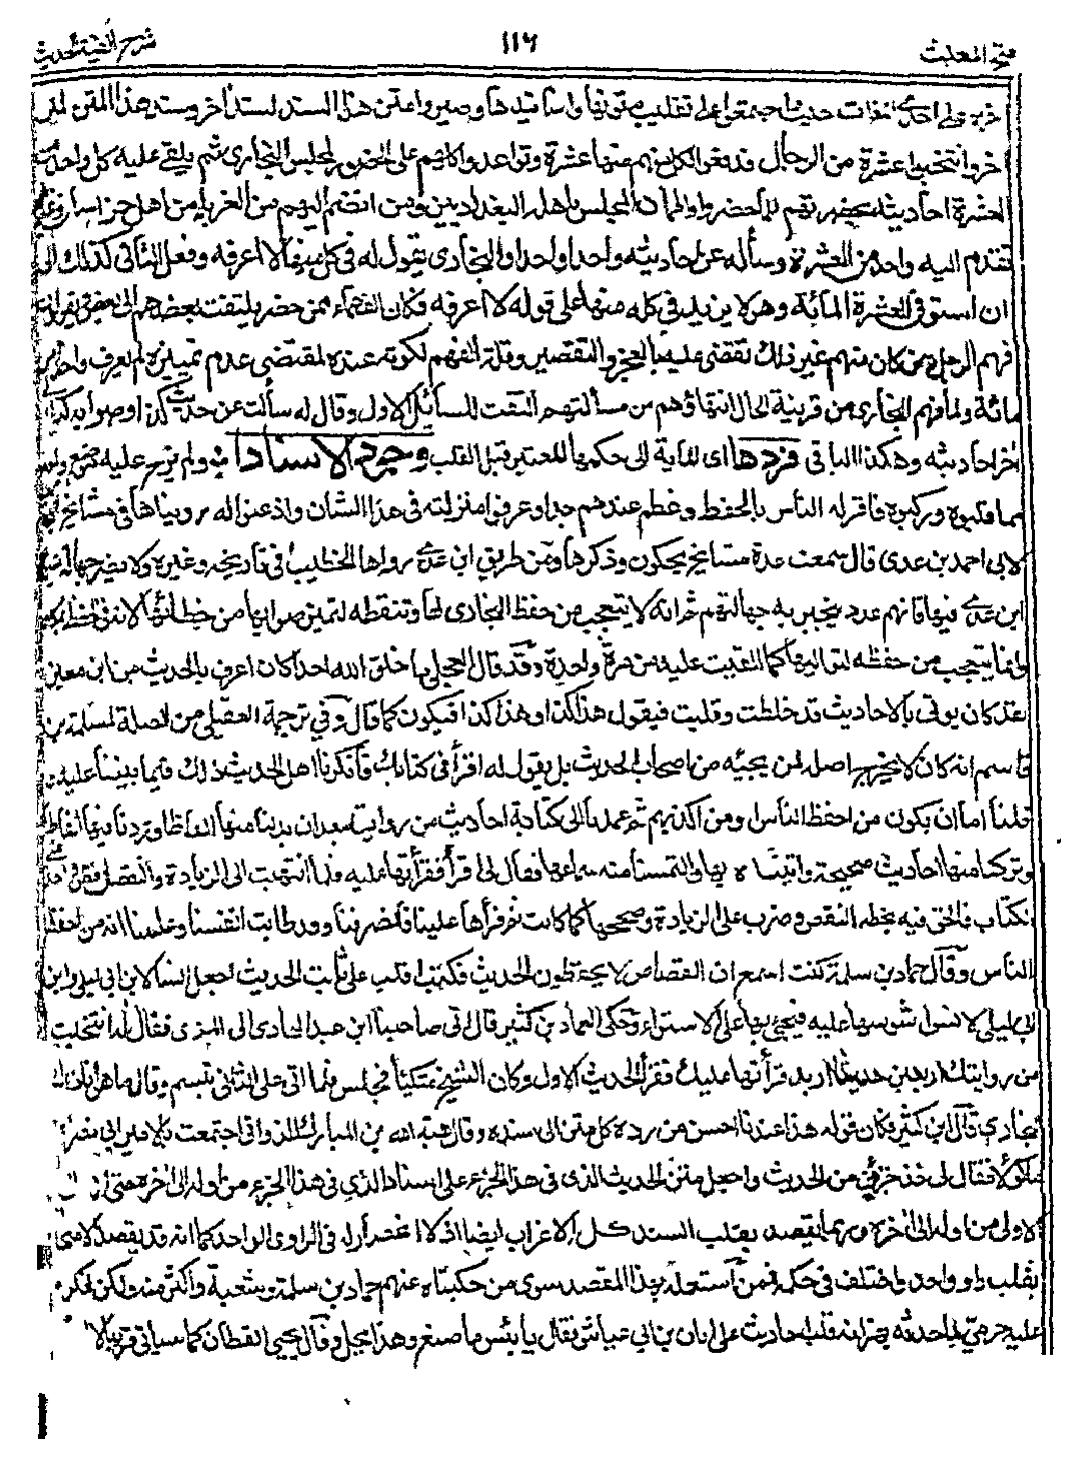 فتح المغيث ١١٦ شرح الفية الحديث
حديث اجتمعوا على تقليب متونها واسانيدها وصيروا متن هذا السند لسند اخر وسند هذا المتن لمتن
اخر وانتخبوا عشرة من الرجال فدفعوا لكل منهم منها عشرة وتواعدوا كلهم على الحضور لمجلس البخاري ثم يلقي عليه كل واحد منهم
العشرة احاديثه بحضرتهم فلما حضروا واطمأن المجلس باهله البغداديين ومن انضم اليهم من الغرباء من اهل خراسان وغيرهم
تقدم اليه واحد من العشرة وسأله عن احاديثه واحدا واحدا والبخاري يقول له في كل منها لا اعرفه وفعل الثاني كذلك الى
ان استوفى العشرة المائة وهو لا يزيد في كل منها على قوله لا اعرفه فكان الفهماء ممن حضر يلتفت بعضهم الى بعض ويقولون
فهم الرجل ومن كان منهم غير ذلك يقضي عليه بالعجز والتقصير وقلة الفهم لكونه عنده لمقتضى عدم تمييزه لم يعرف واحدا من
مائة ولما فهم البخاري من قرينة الحال انتهاؤهم من مسألتهم التفت للسائل الاول وقال له سألت عن حديث كذا وصوابه كذا الى
اخر احاديثه وهكذا الباقي فردها اي المائة الى حكمها المعتبر قبل القلب وجود الاسنادا ولم يرج عليه موضع واحد
مما قلبوه وركبوه فاقر له الناس بالحفظ وعظم عندهم جدا وعرفوا منزلته في هذا الشان واذعنوا له رويناها في مشائخ البخاري
لابي احمد بن عدي قال سمعت عدة مشايخ يحكون وذكرها ومن طريق ابن عدي رواها الخطيب في تاريخه وغيره ولا يضر جهالة شيوخ
ابن عدي فيها فانهم عدد ينجبر به جهالتهم ثم انه لا يتعجب من حفظ البخاري لها وتيقظه لتمييز صوابها من خطائها لانه في الحفظ بمكان
وانما يتعجب من حفظه لتواليها كما القيت عليه من مرة واحدة وقد قال العجلي ما خلق الله احدا كان اعرف بالحديث من ابن معين
لقد كان يوتى بالاحاديث قد خلطت وقلبت فيقول هذا كذا وهذا كذا فيكون كما قال وفي ترجمة العقيلي من الصلة لمسلمة بن
قاسم انه كان لا يخرج اصله لمن يجيئه من اصحاب الحديث بل يقول له اقرأ في كتابك فانكرنا اهل الحديث ذلك فيما بيننا عليه و
قلنا اما ان يكون من احفظ الناس او من اكذبهم ثم عمدنا الى كتابة احاديث من روايته بعد ان بدلنا منها الفاظا وزدنا فيها الفاظا
وتركنا منها احاديث صحيحة واتيناه بها والتمسنا منه سماعها فقال لي اقرأ فقرأتها عليه فلما انتهيت الى الزيادة والنقص فطن واخذ مني
الكتاب فالحق فيه بخطه النقص وضرب على الزيادة وصححها كما كانت ثم قرأها علينا فانصرفنا وقد طابت انفسنا وعلمنا انه من احفظ
الناس وقال حماد بن سلمة كنت اسمع ان القصاص لا يحفظون الحديث فكنت اقلب على ثابت الحديث اجعل انسا لابن ابي ليلى وابن
ابي ليلى لانس اشوشها عليه فيجيء بها على الاستواء وحكى العماد بن كثير قال اتى صاحبنا ابن عبد الهادي الى المزي فقال له انتخبت
من روايتك اربعين حديثا اريد قرأتها عليك فقرأ الحديث الاول وكان الشيخ متكئا فجلس فلما اتى على الثاني تبسم وقال ما هو انا ذاك
البخاري قال ابن كثير فكان قوله هذا عندنا احسن من رده كل متن الى سنده وقال هبة الله بن المبارك الدواتي اجتمعت بالامير ابي نصر بن
ماكولا فقال لي خذ جزئين من الحديث واجعل متن الحديث الذي في هذا الجزء على اسناد الذي في هذا الجزء من اوله الى اخره حتى ارد
الاولى من اوله الى اخره وربما يقصد بقلب السند كله الاغراب ايضا اذ لا انحصار له في الراوي الواحد كما انه قد يقصد الامتحان
بقلب راو واحد واختلف في حكمه فممن استعمله بهذا المقصد سوى من حكيناه عنهم حماد بن سلمة وشعبة واكثر منه ولكن انكره
عليه حرمي لما حدثه بهز انه قلب احاديث على ابان بن ابي عياش فقال يا بئس ما صنع وهذا يحل وقال يحيى القطان كما سيأتي قريبا لا